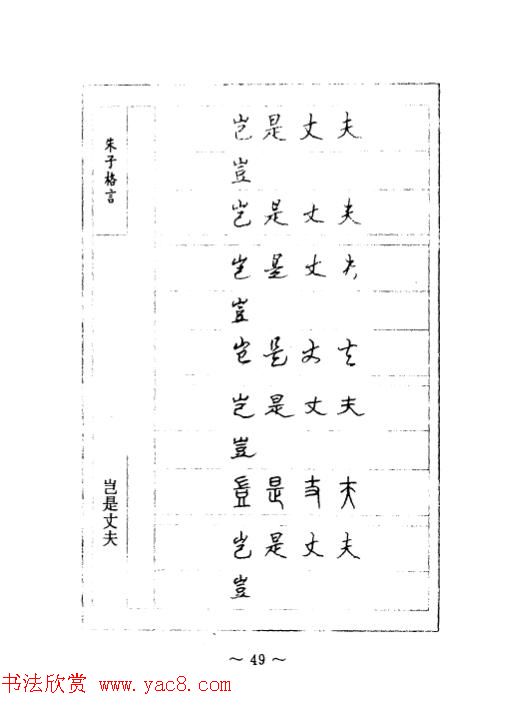 朱子格言
岂是丈夫
岂是丈夫
豈
岂是丈夫
岂是丈夫
豈
岂是丈夫
岂是丈夫
豈
豈是丈夫
岂是丈夫
豈
～ 49 ～
书法欣赏 www.yac8.com